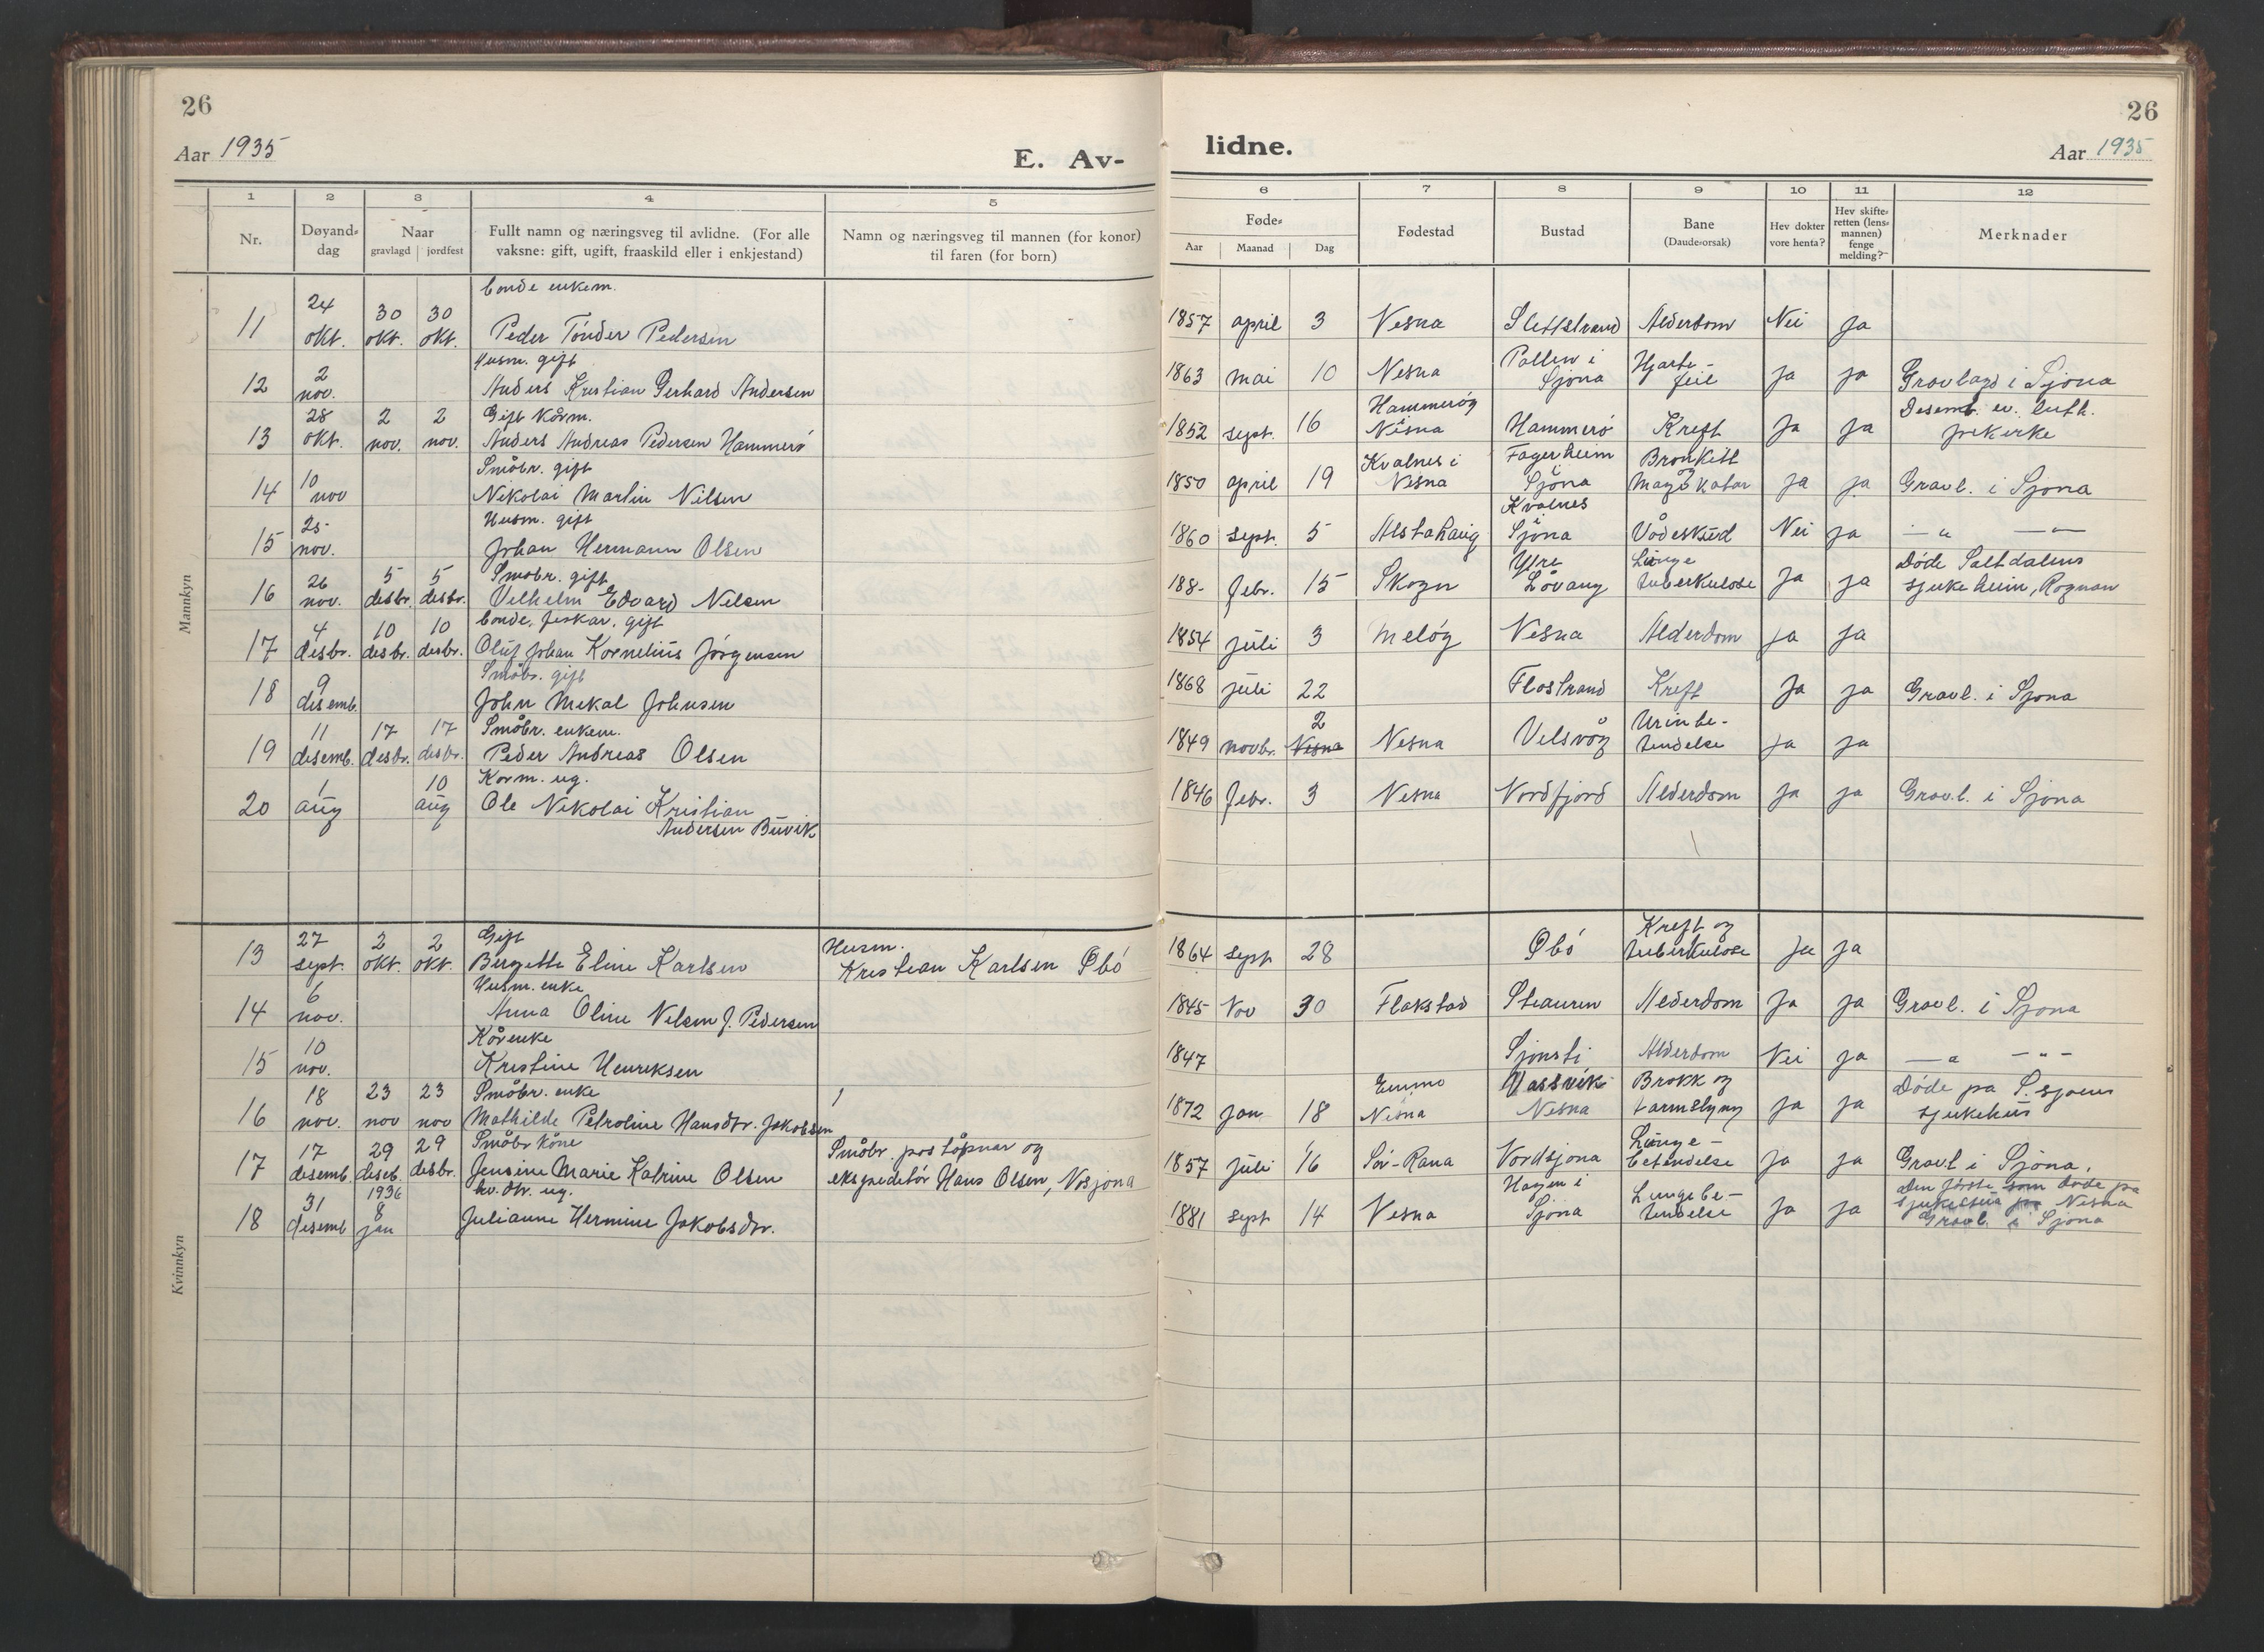 26
Aar 1935
E. Av-
1 2 3 4 5
Nr.
Døyand-dag
Naar gravlagd | jordfest
Fullt namn og næringsveg til avlidne. (For alle vaksne: gift, ugift, fraaskild eller i enkjestand)
Namn og næringsveg til mannen (for konor) til faren (for born)
Mannkyn
bonde enkem.
11 24 okt. 30 okt. 30 okt. Peder Tönder Pedersen
Husm. gift
12 2 nov. Anders Kristian Gerhard Andersen
Gift kårm.
13 28 okt. 2 nov. 2 nov. Anders Andreas Pedersen Hammerö
Småbr. gift
14 10 nov Nikolai Martin Nilsen
Husm. gift
15 25 nov. Johan Hermann Olsen
Småbr. gift
16 26 nov. 5 desbr. 5 desbr. Vilhelm Edvard Nilsen
bonde, fiskar, gift
17 4 desbr. 10 desbr. 10 desbr. Oluf Johan Kornelius Jörgensen
Småbr. gift
18 9 desemb. John Mikal Johnsen
Småbr. enkem.
19 11 desemb. 17 desbr. 17 desbr. Peder Andreas Olsen
Korm. ug.
20 1 aug 10 aug Ole Nikolai Kristian
Andersen Buvik
Kvinnkyn
Gift Husm.
13 27 sept. 2 okt. 2 okt. Birgitte Eline Karlsen Kristian Karlsen Øbö
Husm. enke
14 6 nov. Anna Oline Nilsen f. Pedersen
Kårenke
15 10 nov. Kristine Henriksen
Småbr. enke
16 18 nov. 23 nov 23 nov Mathilde Petroline Hansdtr. Jakobsen
Småbr kone Småbr. poståpnar og
17 17 desemb. 29 deseb. 29 desbr. Jensine Marie Katrine Olsen ekspeditör Hans Olsen, Nosjona
1936 ug.
18 31 desemb 8 jan Julianne Hermine Jakobsdtr.
26
lidne.
Aar 1935
6 7 8 9 10 11 12
Føde-
Aar | Maanad | Dag
Fødestad
Bustad
Bane (Daude-orsak)
Hev dokter vore henta?
Hev skifte-retten (lens-mannen) fenge melding?
Merknader
1857 april 3 Nesna Slettstrand Alderdom Nei Ja
1863 mai 10 Nesna Pollen i Sjona Hjarte-feil Ja Ja Gravlagd i Sjona
1852 sept. 16 Hammeröy Nesna Hammerö Kreft Ja Ja Desemb. ev. luth. frikerke
1850 april 19 Kvalnes i Nesna Fagerheim i Sjona Bronkitt og Magekatar Ja Ja Gravl. i Sjona
1860 sept. 5 Alstahaug Kvalnes i Sjona Vådeskud Nei Ja — " — — " —
188- febr. 15 Skogn Ytre Låvang Lunge tuberkulose Ja Ja Döde Saltdalens sjukeheim, Rognan
1854 juli 3 Melöy Nesna Alderdom Ja Ja
1868 juli 22 Flostrand Kreft Ja Ja Gravl. i Sjona
1849 novbr. 2 Nesna Nesna Velsvåg Urinbe-tendelse Ja Ja
1846 febr. 3 Nesna Nordfjord Alderdom Ja Ja Gravl. i Sjona
1864 sept 28 Øbö Kreft og tuberkulose Ja Ja
1845 Nov 30 Flakstad Stauren Alderdom Ja Ja Gravl. i Sjona
1847 Sjonsti Alderdom Nei Ja — " — - " -
1872 jan 18 Enmo Nesna Vassvik Nesna Brokk og tarmslyng Ja Ja Döde på S.sjoens sjukehus
1857 juli 16 Sör-Rana Nordsjona Lunge-betendelse Ja Ja Gravl i Sjona.
1881 sept 14 Nesna Hagen i Sjona Lungebe-tendelse Ja Ja Den förste som döde på sjukestua på Nesna
Gravl. i Sjona